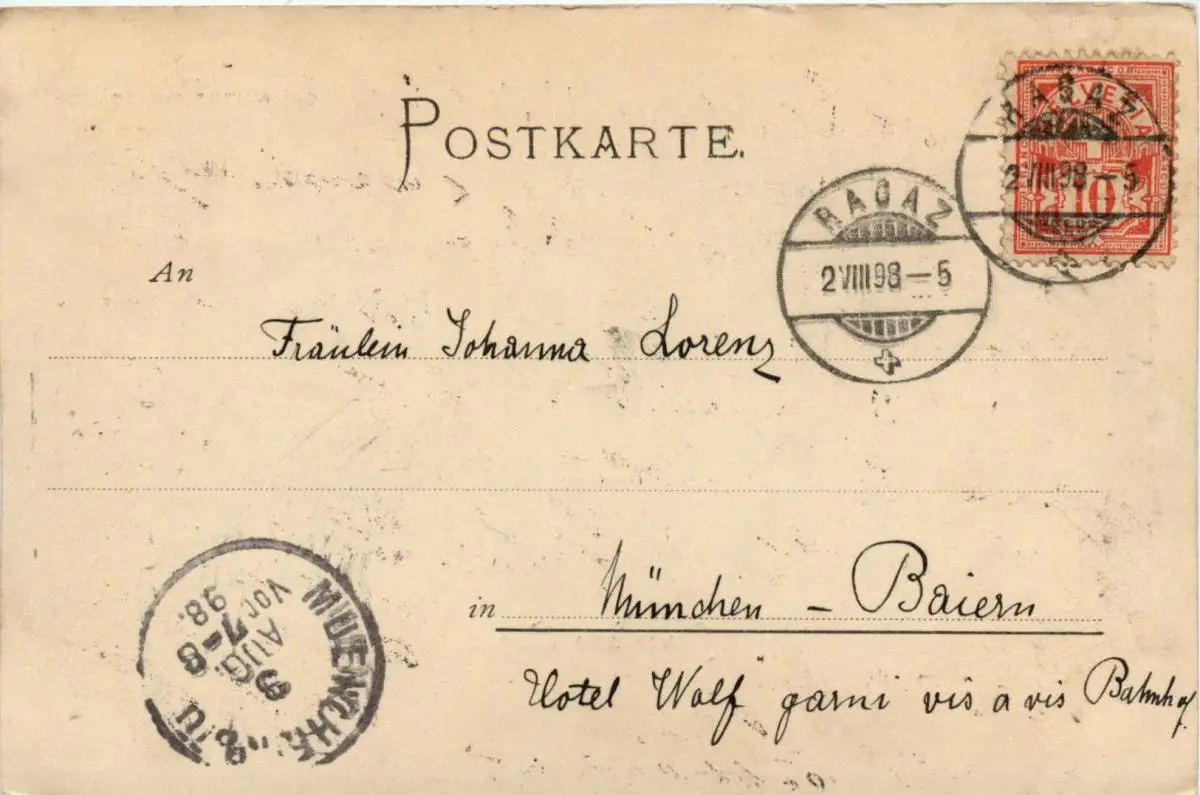 POSTKARTE.
HELVETIA
10
RAGAZ
2 VIII 98 – 5
RAGAZ
2 VIII 98 – 5
An
Fräulein Johanna Lorenz
in München – Baiern
Hotel Wolf garni vis a vis Bahnhof
MUENCHEN
AUG.
Vor 7-8
98.